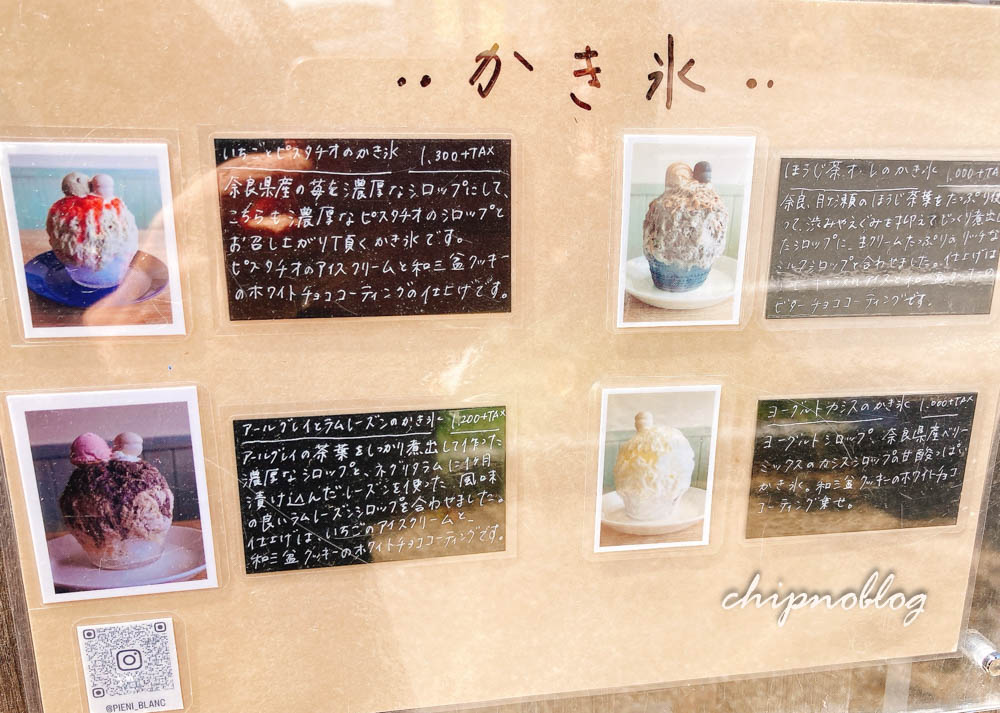 ‥かき氷‥
いちごとピスタチオのかき氷 1,300+TAX
奈良県産の苺を濃厚なシロップにして、
こちらも濃厚なピスタチオのシロップと
お召し上がり頂くかき氷です。
ピスタチオのアイスクリームと和三盆クッキー
のホワイトチョココーティングの仕上げです。
ほうじ茶オ・レのかき氷 1,000+TA
奈良、月ヶ瀬のほうじ茶葉をたっぷり使
って、渋みやえぐみを抑えてじっくり煮出し
たシロップに、生クリームたっぷりのリッチな
ミルクシロップと合わせました。仕上げは
ビターチョココーティングです。
アールグレイとラムレーズンのかき氷 1,200+TAX
アールグレイの茶葉をしっかり煮出して作った
濃厚なシロップと、ネグリタラムに1ヶ月
漬け込んだレーズンを使った、風味
の良いラムレーズンシロップを合わせました。
仕上げは、いちごのアイスクリームと、
和三盆クッキーのホワイトチョココーティングです。
ヨーグルトカシスのかき氷 1,000+TAX
ヨーグルトシロップ、奈良県産ベリー
ミックスのカシスシロップの甘酸っぱい
かき氷。和三盆クッキーのホワイトチョコ
コーティング乗せ。
chipnoblog
@PIENI_BLANC